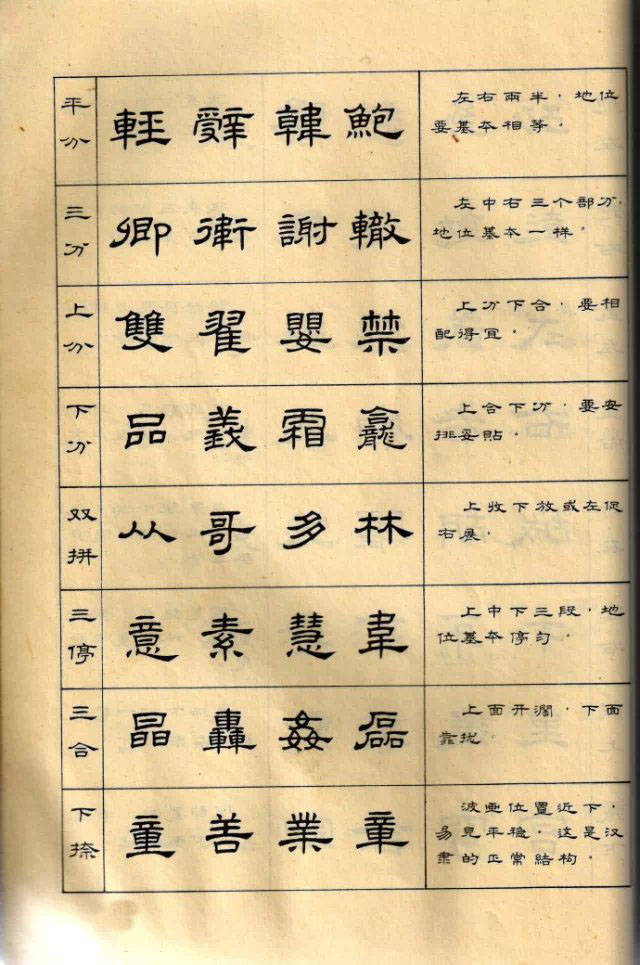 平分
輕 辭 韓 鮑
左右兩半，地位
要基本相等。
三分
卿 衛 謝 轍
左中右三个部分，
地位基本一样。
上分
雙 翟 嬰 禁
上分下合，要相
配得宜。
下分
品 義 霜 龕
上合下分，要安
排妥貼。
双拼
从 哥 多 林
上收下放或左促
右展。
三停
意 素 慧 韋
上中下三段，地
位基本停匀。
三合
晶 轟 姦 磊
上面开濶，下面
靠拢。
下捺
童 善 業 章
波画位置近下，
易見平稳，这是汉
隶的正常結构。